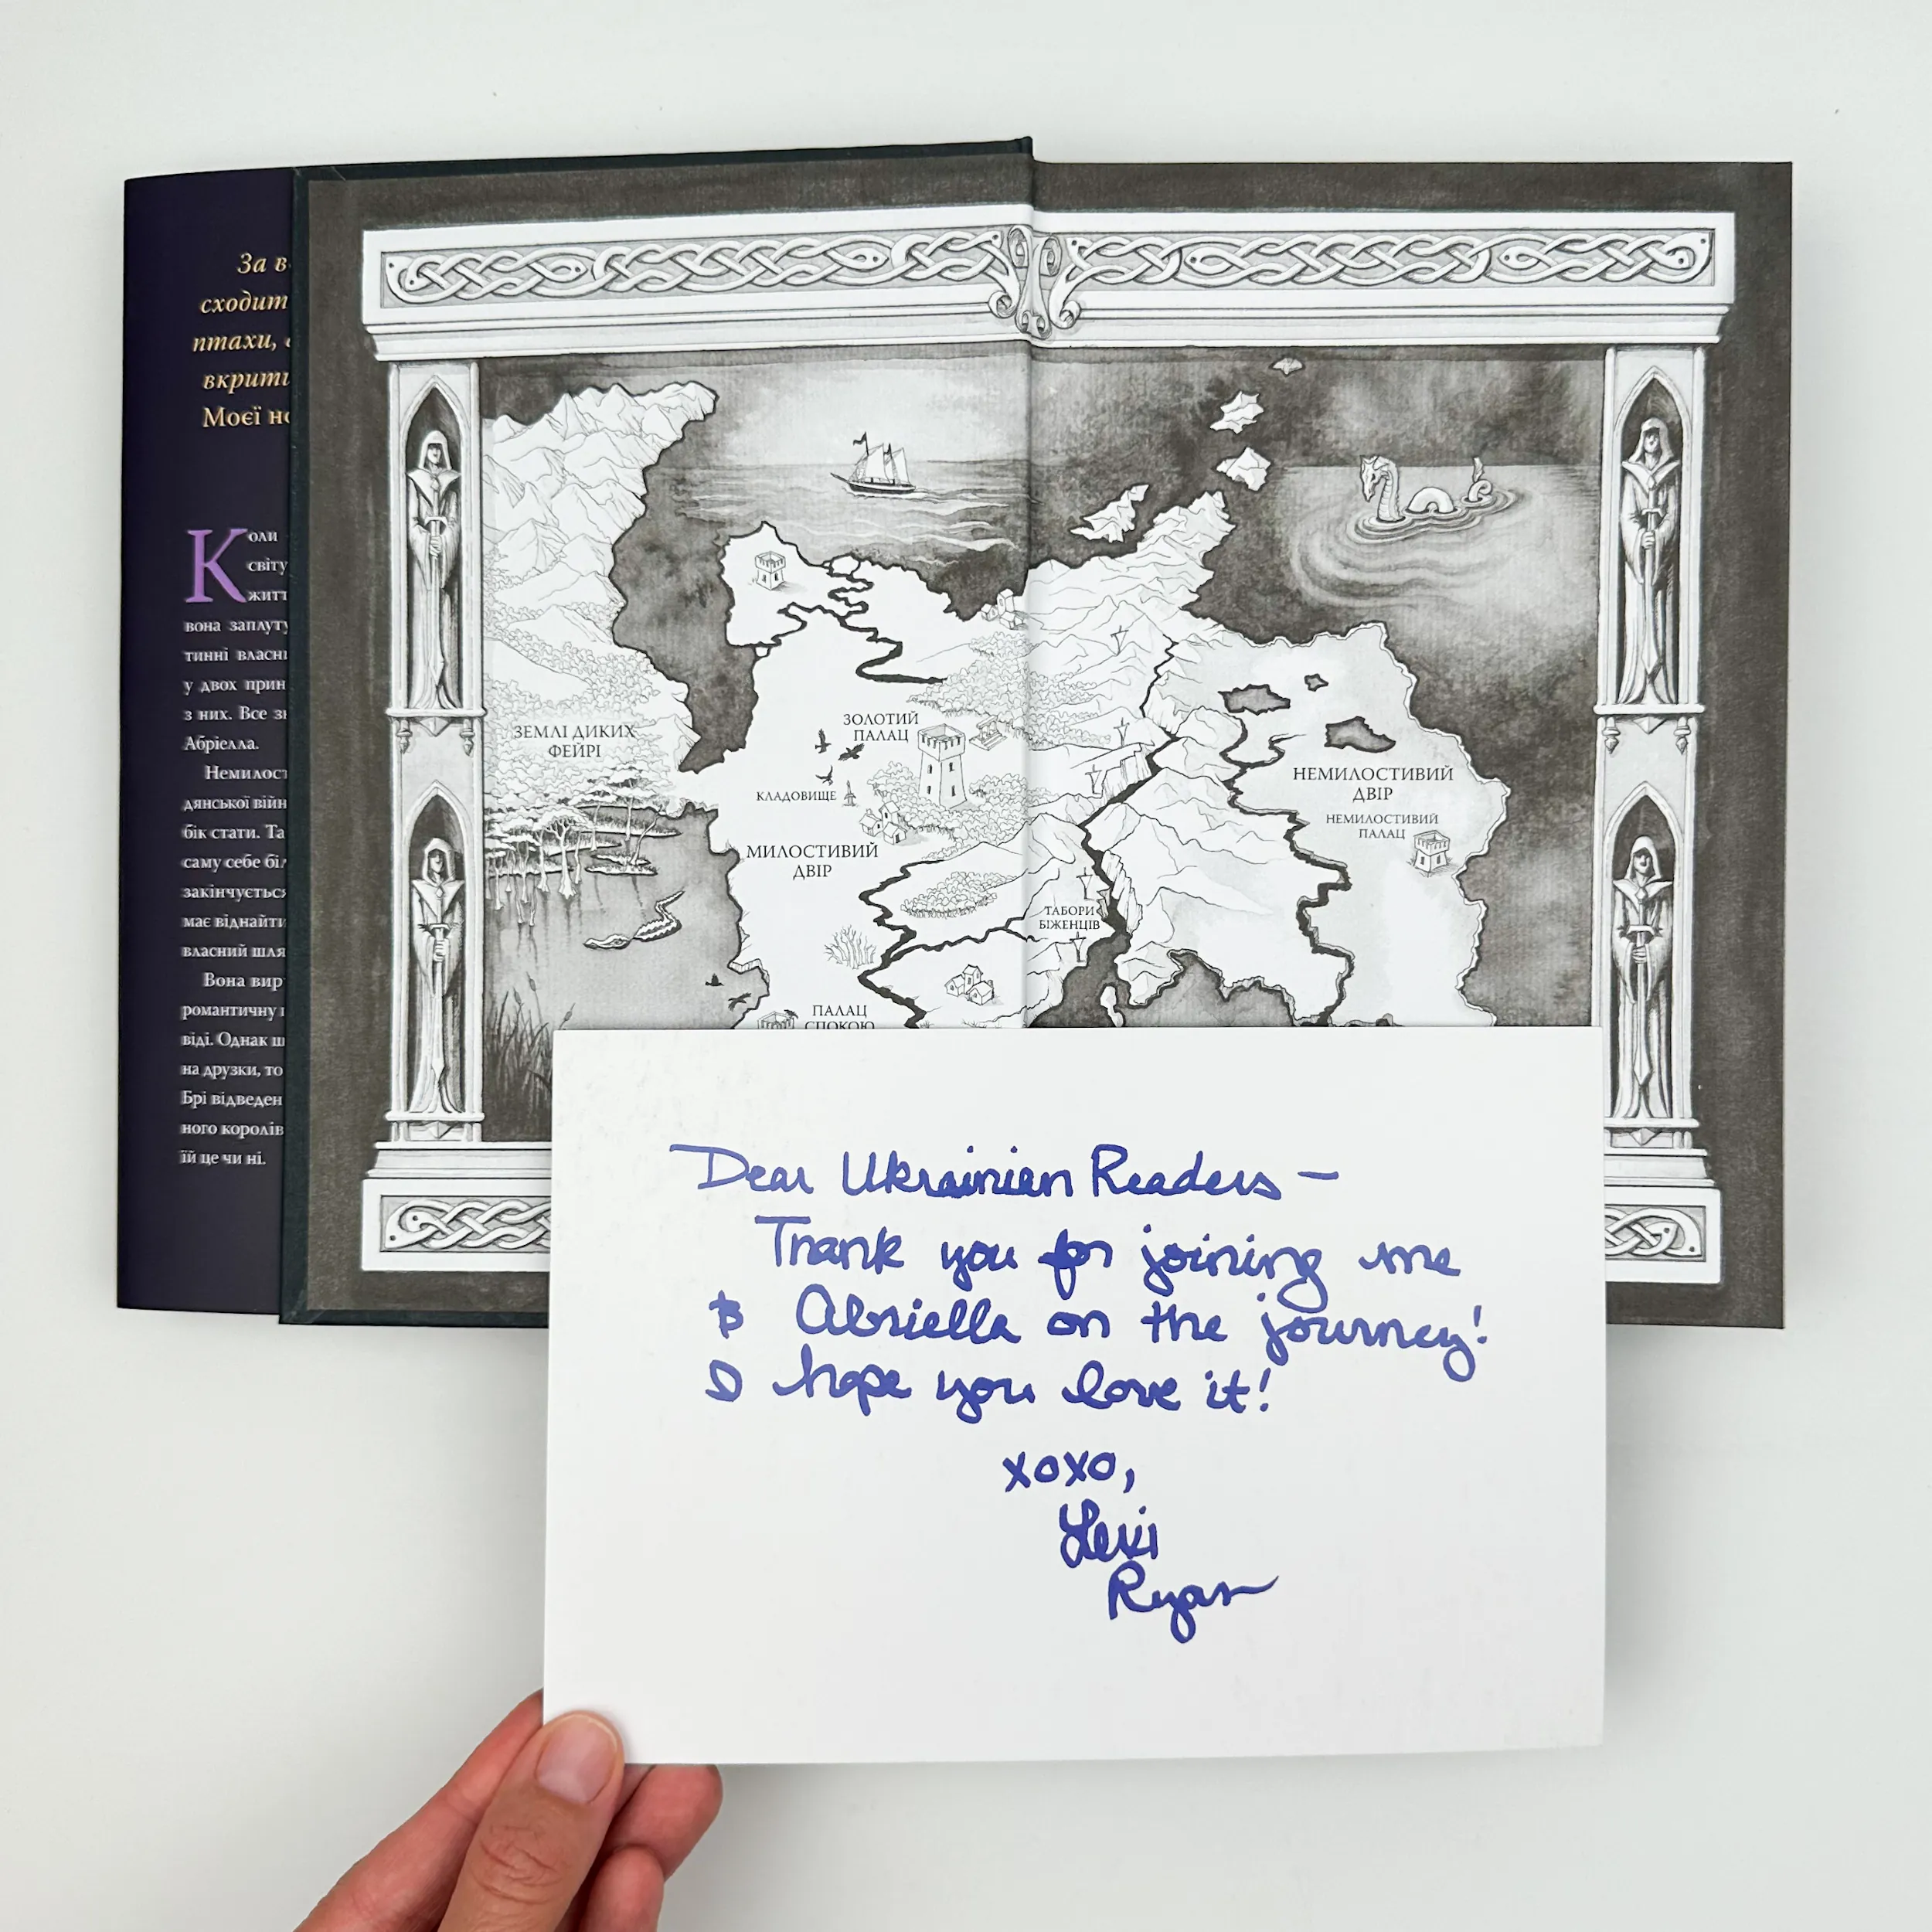 За
сходит
птахи,
вкрити
Моєї
Коли
світу
житт
вона заплуту
тинні власн
у двох прин
з них. Все
Абріелла.
Немилост
дянської війн
бік стати. Та
саму себе біл
закінчується
має віднайти
власний шля
Вона вир
романтичну
віді. Однак
на друзки, то
Брі відведен
ного королів
їй це чи ні.
ЗЕМЛІ ДИКИХ
ФЕЙРІ
ЗОЛОТИЙ
ПАЛАЦ
КЛАДОВИЩЕ
МИЛОСТИВИЙ
ДВІР
ПАЛАЦ
СПОКОЮ
ТАБОРИ
БІЖЕНЦІВ
НЕМИЛОСТИВИЙ
ДВІР
НЕМИЛОСТИВИЙ
ПАЛАЦ
Dear Ukrainian Readers —
Thank you for joining me
& Abriella on the journey!
I hope you love it!
xoxo,
Lexi
Ryan